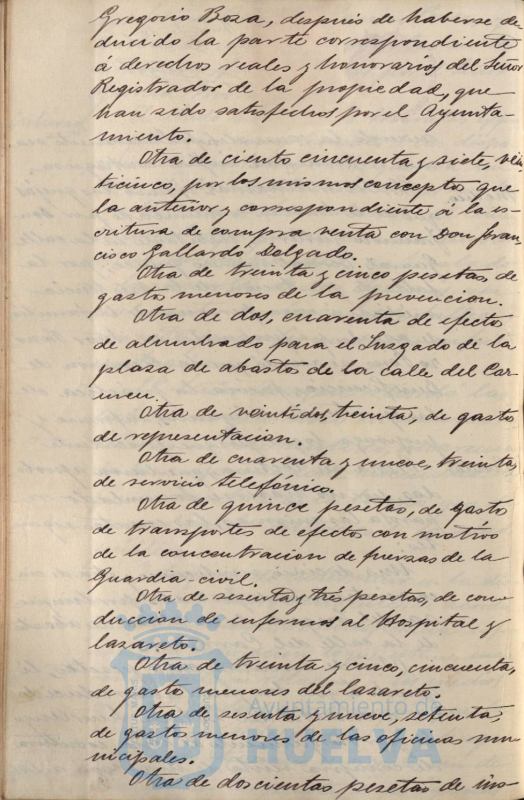 Gregorio Boza, después de haberse de-
ducido la parte correspondiente
á derechos reales y honorarios del Señor
Registrador de la propiedad, que
han sido satisfechos por el Ayunta-
miento.
Otra de ciento cincuenta y siete, vein-
ticinco, por los mismos concepto que
la anterior y correspondiente á la es-
critura de compra venta con Don Fran-
cisco Gallardo Delgado.
Otra de treinta y cinco pesetas, de
gasto menores de la prevencion.
Otra de dos, cuarenta de efecto
de alumbrado para el Juzgado de la
plaza de abasto de la calle del Car-
men.
Otra de veintidos, treinta, de gasto
de representacion.
Otra de cuarenta y nueve, treinta,
de servicio telefónico.
Otra de quince pesetas, de gasto
de transportes de efecto con motivo
de la concentracion de fuerzas de la
Guardia-civil.
Otra de sesenta y trés pesetas, de con-
duccion de enfermos al Hospital y
lazareto.
Otra de treinta y cinco, cincuenta,
de gasto menores del lazareto.
Otra de sesenta y nueve, setenta,
de gastos menores de las oficinas mu-
nicipales.
Otra de doscientas pesetas de ins-
Ayuntamiento de
HUELVA